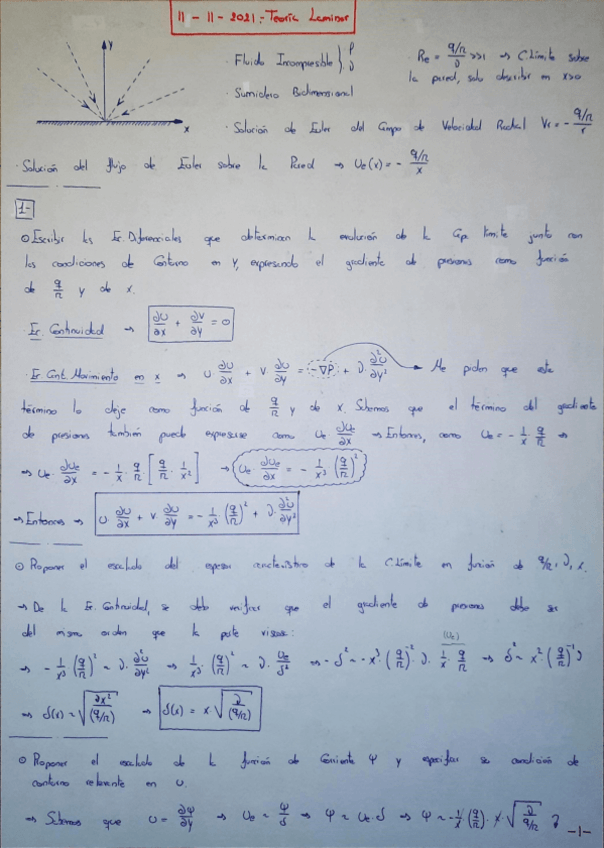 11 - 11 - 2021 :- Teoría Laminar
y
x
· Fluido Incompresible } ρ ν
· Sumidero Bidimensional
· Re = (q/π)/ν >>1 → C.Límite sobre
la pared, solo describir en x>0
· Solución de Euler del Campo de Velocidad Radial Vr = - (q/π)/r
· Solución del flujo de Euler sobre la Pared → Ue(x) = - (q/π)/x
1-
⊙ Escribir las Ec. Diferenciales que determinan la evolución de la Cap. límite junto con
las condiciones de Contorno en y, expresando el gradiente de presiones como función
de q/π y de x.
· Ec. Continuidad → ∂U/∂x + ∂V/∂y = 0
· Ec. Cant. Movimiento en x → U ∂U/∂x + V · ∂U/∂y = -∇P + ν · ∂²U/∂y² → Me piden que este
término lo deje como función de q/π y de x. Sabemos que el término del gradiente
de presiones también puede expresarse como Ue ∂U/∂x → Entonces, como Ue = - 1/x · q/π ⇒
⇒ Ue · ∂Ue/∂x = - 1/x · q/π · [q/π · 1/x²] → Ue · ∂Ue/∂x = - 1/x³ · (q/π)²
→ Entonces → U · ∂U/∂x + V · ∂U/∂y = - 1/x³ · (q/π)² + ν · ∂²U/∂y²
⊙ Proponer el escalado del espesor característico de la C.Límite en función de q/π, ν, x.
→ De la Ec. Continuidad, se debe verificar que el gradiente de presiones debe ser
del mismo orden que la parte viscosa:
→ - 1/x³ · (q/π)² ~ ν · ∂²U/∂y² → 1/x³ · (q/π)² ~ ν · Ue/δ² → - δ² ~ - x³ · (q/π)⁻² · ν · 1/x · q/π (Ue) → δ² ~ x² · (q/π)⁻¹ ν
→ δ(x) ~ √(νx²/(q/π)) → δ(x) = x · √(ν/(q/π))
⊙ Proponer el escalado de la función de Corriente Ψ y especificar su condición de
contorno relevante en U.
→ Sabemos que U = ∂Ψ/∂y → Ue ~ Ψ/δ → Ψ ~ Ue · δ → Ψ ~ - 1/x · (q/π) · x √(ν/(q/π))
-1-